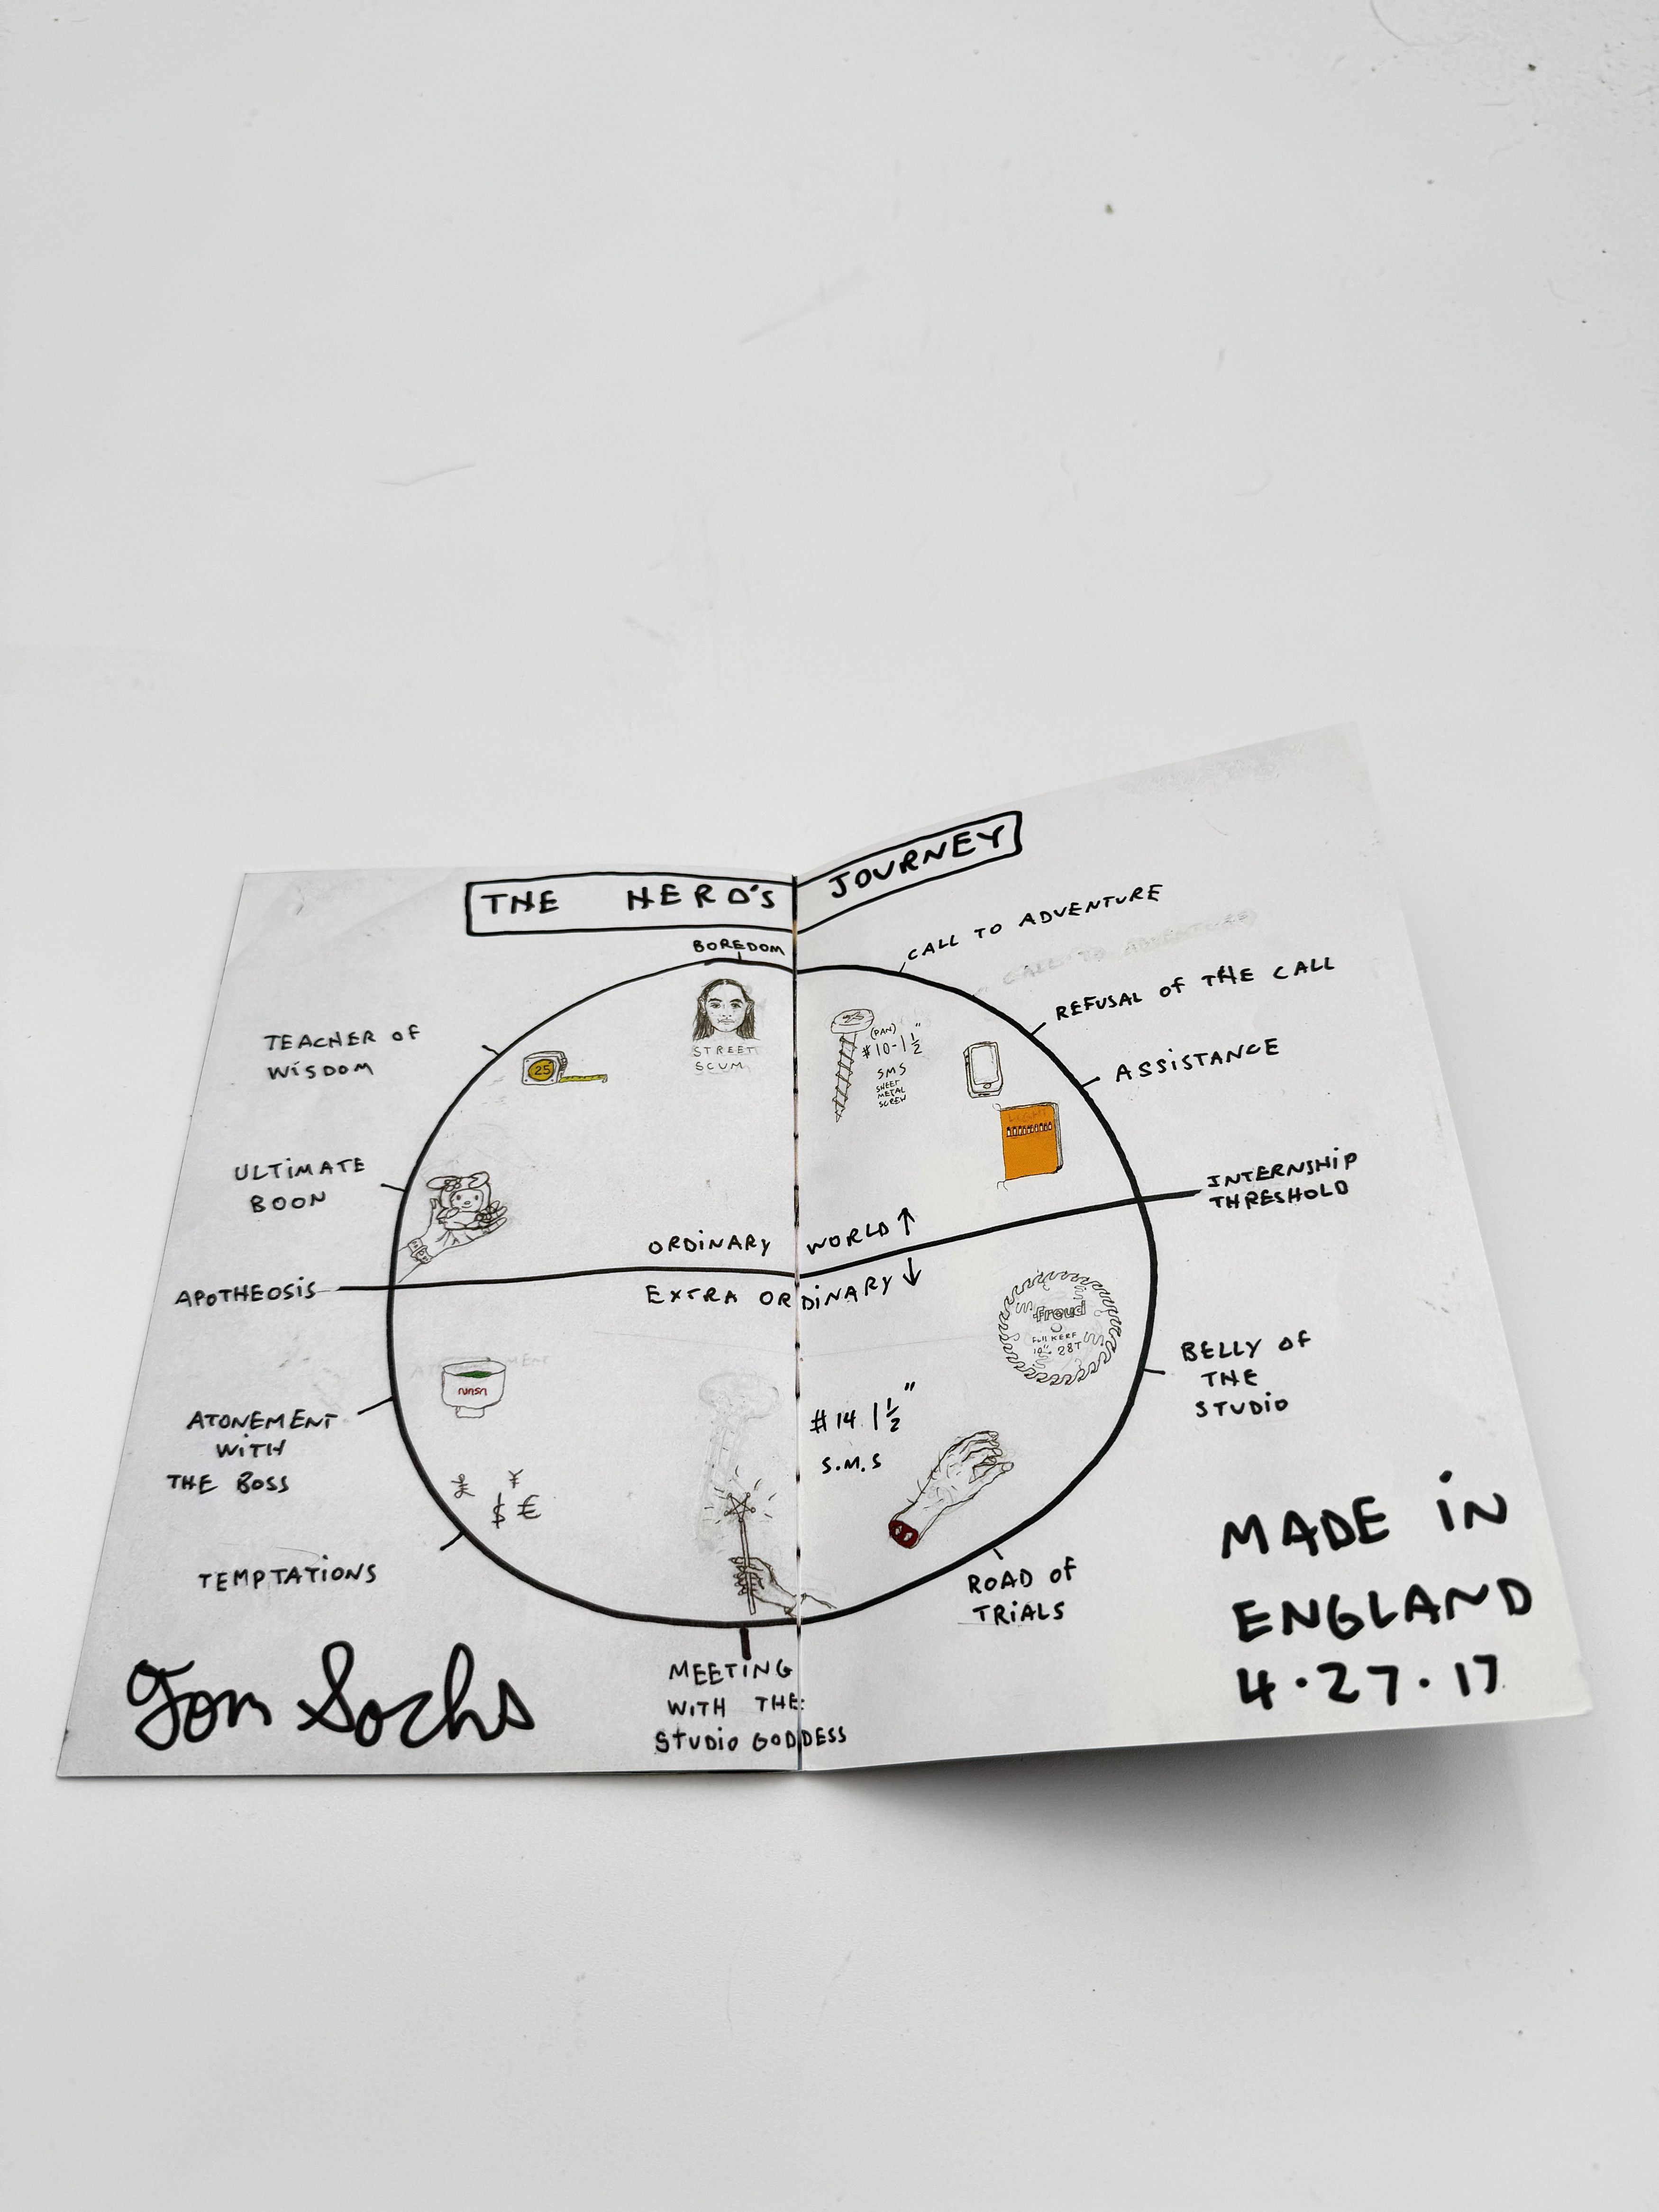 THE HERO'S JOURNEY
BOREDOM
CALL TO ADVENTURE
CALL TO ADVENTURE
REFUSAL OF THE CALL
ASSISTANCE
INTERNSHIP
THRESHOLD
BELLY OF
THE
STUDIO
ROAD OF
TRIALS
MEETING
WITH THE
STUDIO GODDESS
TEMPTATIONS
ATONEMENT
WITH
THE BOSS
APOTHEOSIS
ULTIMATE
BOON
TEACHER OF
WISDOM
STREET
SCUM
(PAN)
#10-1 1/2"
SMS
SHEET
METAL
SCREW
25
LIGHT
ORDINARY WORLD ↑
EXTRA ORDINARY ↓
Freud
FULL KERF
10" 28T
#14 1 1/2"
S.M.S
NASA
£ ¥
$ €
Tom Sachs
MADE IN
ENGLAND
4.27.17